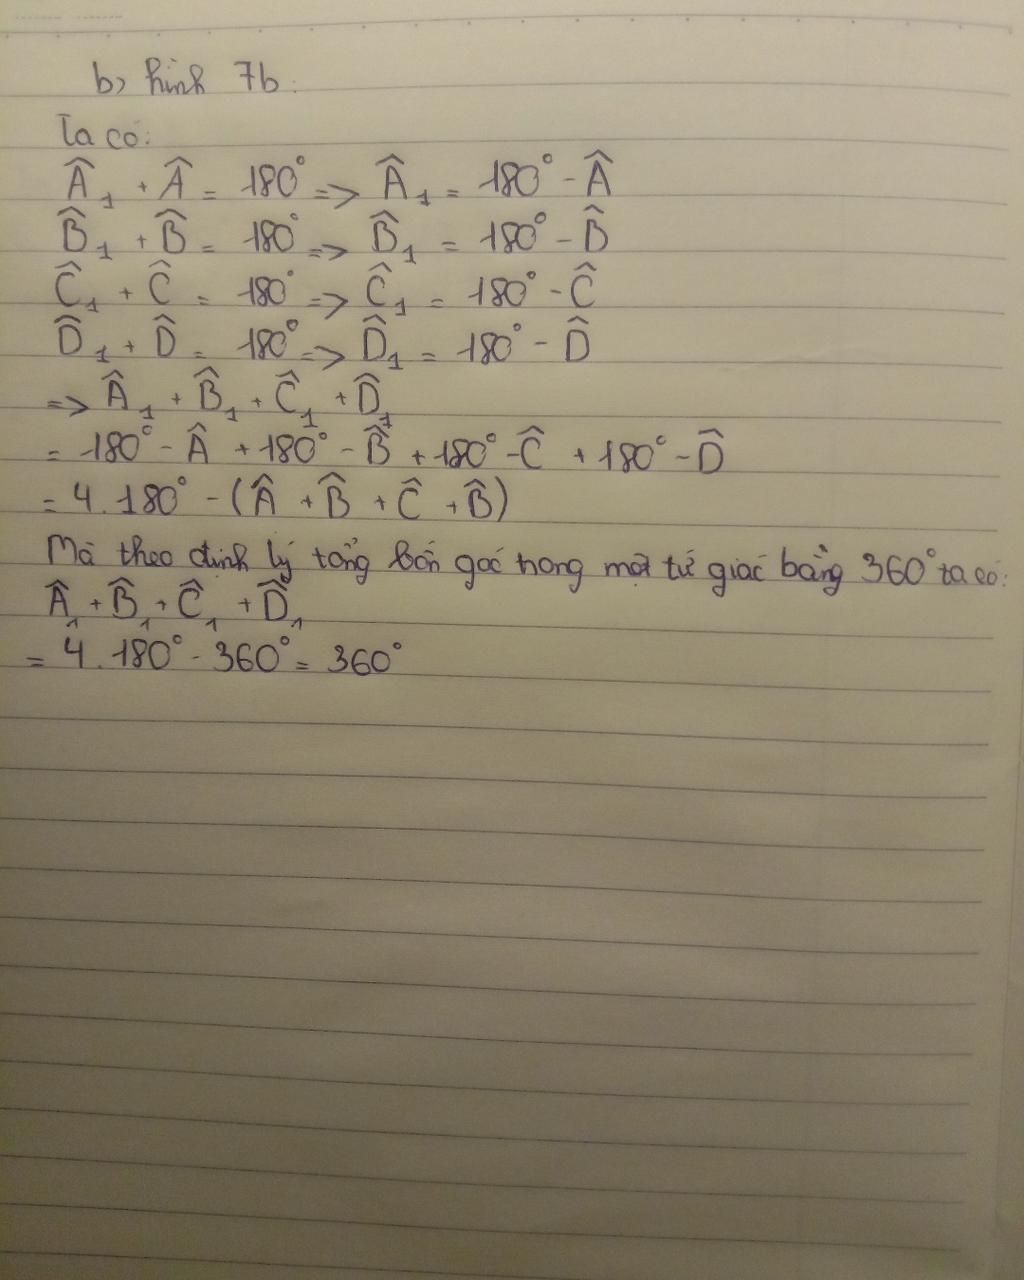 b, hình 7b:
Ta có:
Â₁ + Â = 180° => Â₁ = 180° - Â
B̂₁ + B̂ = 180° => B̂₁ = 180° - B̂
Ĉ₁ + Ĉ = 180° => Ĉ₁ = 180° - Ĉ
D̂₁ + D̂ = 180° => D̂₁ = 180° - D̂
=> Â₁ + B̂₁ + Ĉ₁ + D̂₁
= 180° - Â + 180° - B̂ + 180° - Ĉ + 180° - D̂
= 4.180° - (Â + B̂ + Ĉ + B̂)
Mà theo định lý tổng bốn góc trong một tứ giác bằng 360° ta có:
Â₁ + B̂₁ + Ĉ₁ + D̂₁
= 4.180° - 360° = 360°